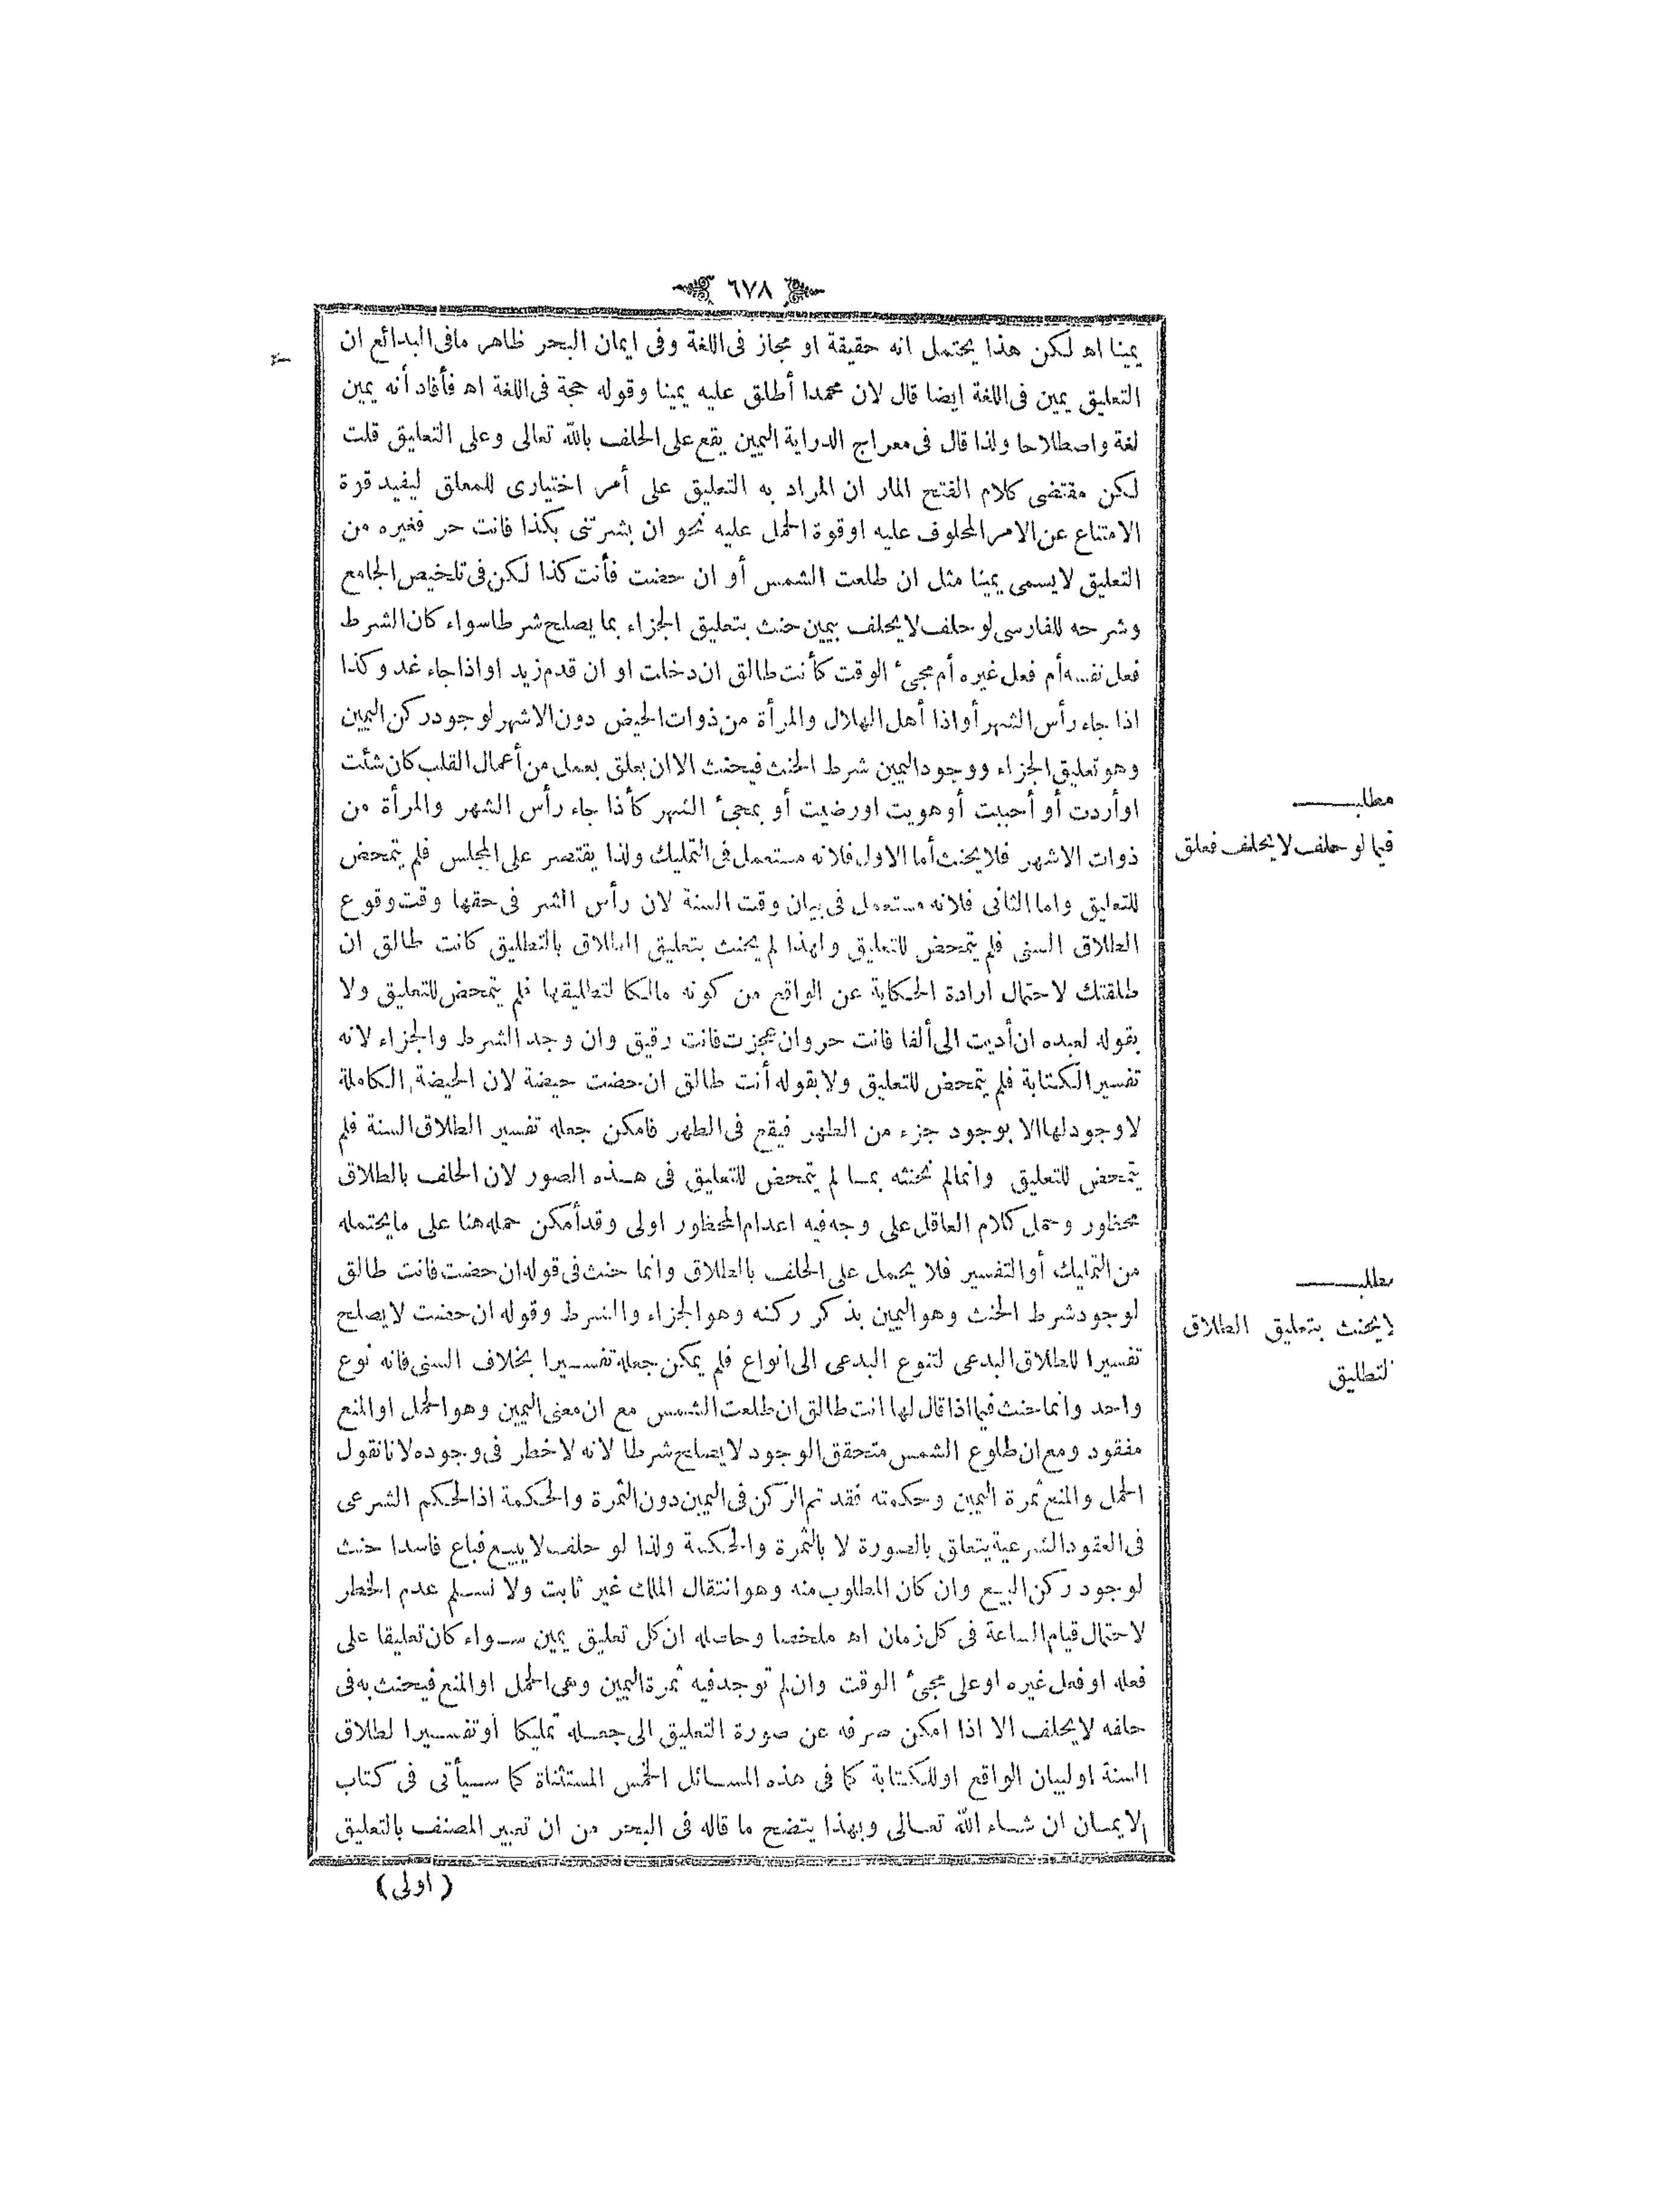 ٦٧٨
يمينا اه لكن هذا يحتمل انه حقيقة او مجاز فى اللغة وفى ايمان البحر ظاهر مافى البدائع ان
التعليق يمين فى اللغة ايضا قال لان محمدا أطلق عليه يمينا وقوله حجة فى اللغة اه فأفاد أنه يمين
لغة واصطلاحا ولذا قال فى معراج الدراية اليمين يقع على الحلف بالله تعالى وعلى التعليق قلت
لكن مقتضى كلام الفتح المار ان المراد به التعليق على أمر اختيارى للمعلق ليفيد قوة
الامتناع عن الامر المحلوف عليه او قوة الحمل عليه نحو ان بشرتنى بكذا فانت حر فغيره من
التعليق لا يسمى يمينا مثل ان طلعت الشمس أو ان حضت فأنت كذا لكن فى تلخيص الجامع
وشرحه للفارسى لو حلف لا يحلف بيمين حنث بتعليق الجزاء بما يصلح شرطا سواء كان الشرط
فعل نفسه أم فعل غيره أم مجىء الوقت كأنت طالق ان دخلت او ان قدم زيد او اذا جاء غد وكذا
اذا جاء رأس الشهر أو اذا أهل الهلال والمرأة من ذوات الحيض دون الاشهر لوجود ركن اليمين
وهو تعليق الجزاء ووجود اليمين شرط الحنث فيحنث الا ان يعلق بعمل من أعمال القلب كان شئت
او أردت أو أحببت أو هويت او رضيت أو بمجىء الشهر كأذا جاء رأس الشهر والمرأة من
ذوات الاشهر فلا يحنث أما الاول فلانه مستعمل فى التمليك ولذا يقتصر على المجلس فلم يتمحض
للتعليق واما الثانى فلانه مستعمل فى بيان وقت السنة لان رأس الشهر فى حقها وقت وقوع
الطلاق السنى فلم يتمحض للتعليق ولهذا لم يحنث بتعليق الطلاق بالتطليق كانت طالق ان
طلقتك لاحتمال ارادة الحكاية عن الواقع من كونه مالكا لتطليقها فلم يتمحض للتعليق ولا
بقوله لعبده ان أديت الى ألفا فانت حر وان عجزت فانت رقيق وان وجد الشرط والجزاء لانه
تفسير الكتابة فلم يتمحض للتعليق ولا بقوله أنت طالق ان حضت حيضة لان الحيضة الكاملة
لا وجود لها الا بوجود جزء من الطهر فيقع فى الطهر فامكن جعله تفسير الطلاق السنة فلم
يتمحض للتعليق وانما لم نحنثه بما لم يتمحض للتعليق فى هذه الصور لان الحلف بالطلاق
محظور وحمل كلام العاقل على وجه فيه اعدام المحظور اولى وقد أمكن حمله هنا على ما يحتمله
من التمليك أو التفسير فلا يحمل على الحلف بالطلاق وانما حنث فى قوله ان حضت فانت طالق
لوجود شرط الحنث وهو اليمين بذكر ركنه وهو الجزاء والشرط وقوله ان حضت لا يصلح
تفسيرا للطلاق البدعى لتنوع البدعى الى انواع فلم يمكن جعله تفسيرا بخلاف السنى فانه نوع
واحد وانما حنث فيما اذا قال لها انت طالق ان طلعت الشمس مع ان معنى اليمين وهو الحمل او المنع
مفقود ومع ان طلوع الشمس متحقق الوجود لا يصلح شرطا لانه لا خطر فى وجوده لانا نقول
الحمل والمنع ثمرة اليمين وحكمته فقد تم الركن فى اليمين دون الثمرة والحكمة اذ الحكم الشرعى
فى العقود الشرعية يتعلق بالصورة لا بالثمرة والحكمة ولذا لو حلف لا يبيع فباع فاسدا حنث
لوجود ركن البيع وان كان المطلوب منه وهو انتقال الملك غير ثابت ولا نسلم عدم الخطر
لاحتمال قيام الساعة فى كل زمان اه ملخصا وحاصله ان كل تعليق يمين سواء كان تعليقا على
فعله او فعل غيره او على مجىء الوقت وان لم توجد فيه ثمرة اليمين وهى الحمل او المنع فيحنث به فى
حلفه لا يحلف الا اذا امكن صرفه عن صورة التعليق الى جعله تمليكا او تفسيرا لطلاق
السنة او لبيان الواقع او للكتابة كما فى هذه المسائل الخمس المستثناة كما سيأتى فى كتاب
الايمان ان شاء الله تعالى وبهذا يتضح ما قاله فى البحر من ان تعبير المصنف بالتعليق
(اولى)
مطلب
فيما لو حلف لا يحلف فعلق
مطلب
لا يحنث بتعليق الطلاق
لتطليق